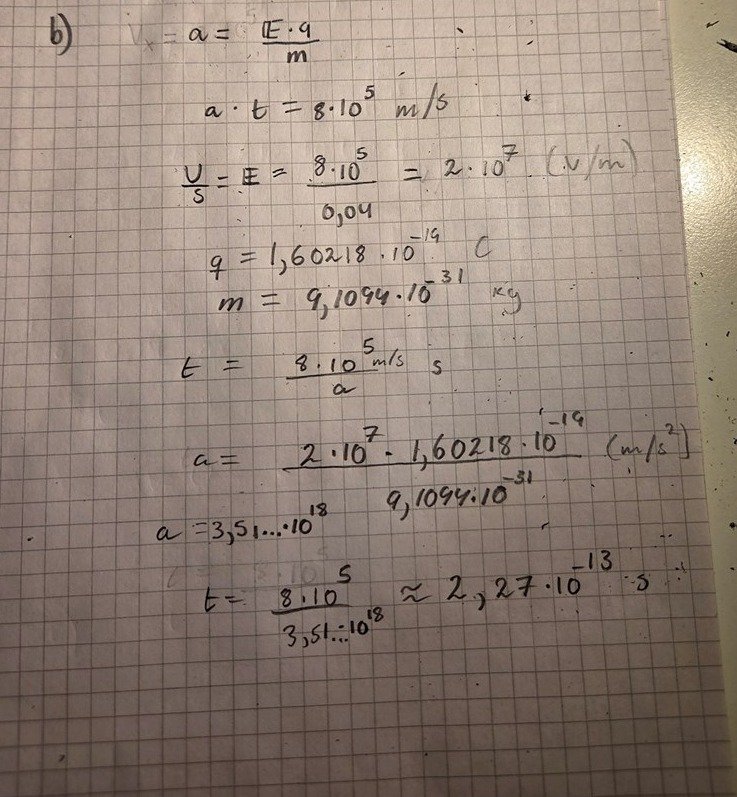 b) Vx = a = E·q/m
a · t = 8·10⁵ m/s
U/s = E = 8·10⁵/0,04 = 2·10⁷ (V/m)
q = 1,60218·10⁻¹⁹ C
m = 9,1094·10⁻³¹ kg
t = 8·10⁵ m/s / a s
a = 2·10⁷ · 1,60218·10⁻¹⁹ / 9,1094·10⁻³¹ (m/s²)
a = 3,51...·10¹⁸
t = 8·10⁵ / 3,51...·10¹⁸ ≈ 2,27·10⁻¹³ s